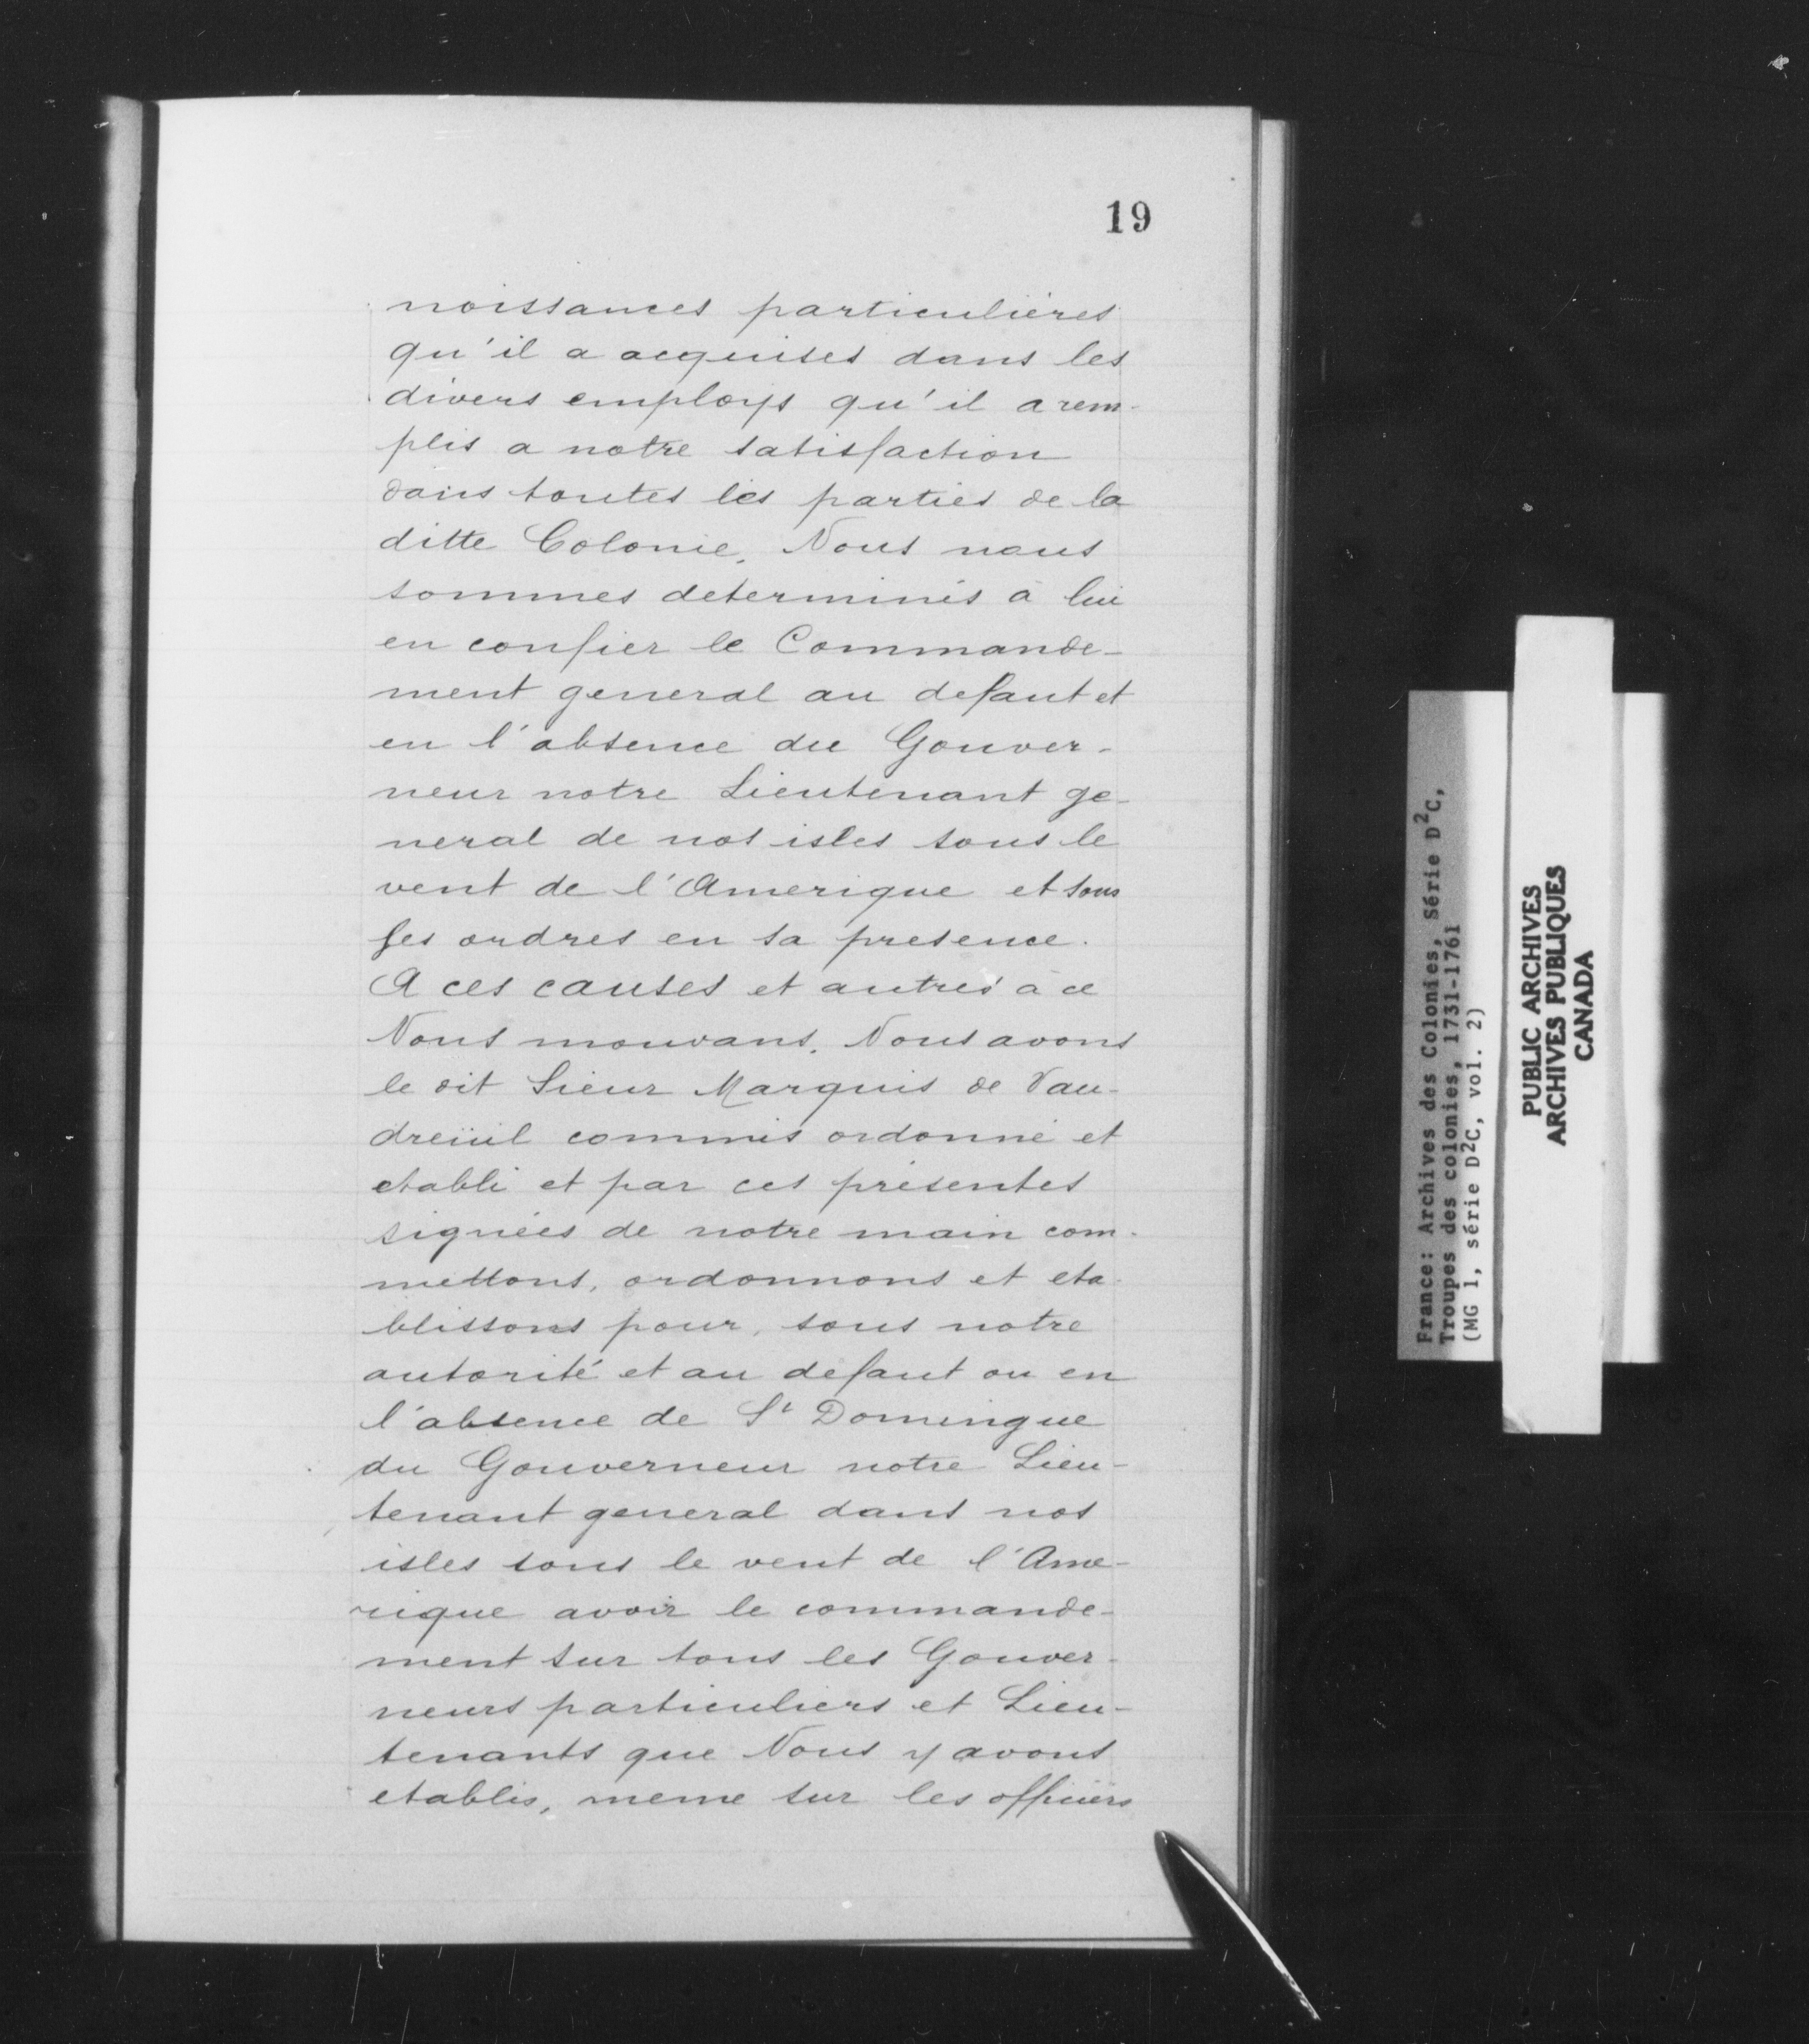 19
noissances particulières
qu'il a acquises dans les
divers employs qu'il a rem-
plis a notre satisfaction
dans toutes les parties de la
ditte Colonie, Nous nous
sommes determinés à lui
en confier le Commande-
ment general au defaut et
en l'absence du Gouver-
neur notre Lieutenant ge-
neral de nos isles sous le
vent de l'Amerique et sous
ses ordres en sa presence.
A ces causes et autres à ce
Nous mouvans, Nous avons
le dit Sieur Marquis de Vau-
dreüil commis ordonné et
etabli et par ces présentes
signées de notre main com-
mettons, ordonnons et eta-
blissons pour, sous notre
autorité et au défaut ou en
l'absence de St Domingue
du Gouverneur notre Lieu-
tenant general dans nos
isles sous le vent de l'Ame-
rique avoir le commande-
ment sur tous les Gouver-
neurs particuliers et Lieu-
tenants que Nous y avons
etablis, meme sur les officiers
France: Archives des Colonies, Série D2C,
Troupes des colonies, 1731-1761
(MG 1, série D2C, vol. 2)
PUBLIC ARCHIVES
ARCHIVES PUBLIQUES
CANADA